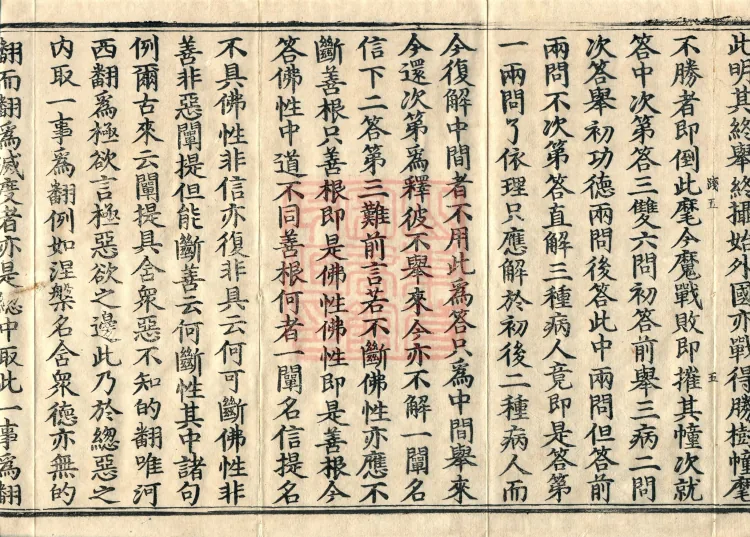 此明其終舉終攝始外國亦戰得勝樹幢麾
不勝者即倒此麾今魔戰敗即摧其幢次就
踐五 五
答中次第答三雙六問初答前舉三病二問
次答舉初功德兩問後答此中兩問但答前
兩問不次第答直解三種病人竟即是答第
一兩問了依理只應解於初後二種病人而
今復解中間者不用此為答只為中間舉來
今還次第為釋彼不舉來今亦不解一闡名
信下二答第三難前言若不斷佛性亦應不
斷善根只善根即是佛性佛性即是善根今
答佛性中道不同善根何者一闡名信提名
不具佛性非信亦復非具云何可斷佛性非
善非惡闡提但能斷善云何斷性其中諸句
例爾古來云闡提具舍眾惡不知的翻唯河
西翻為極欲言極惡欲之邊此乃於總惡之
內取一事為翻例如涅槃名舍眾德亦無的
翻而翻為滅度者亦是總中取此一事為翻